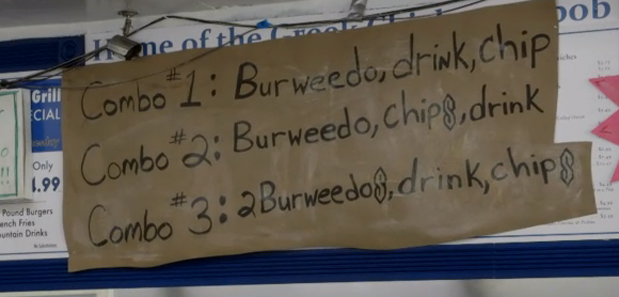 Home of the Greek Chicken
bob
Combo #1: Burweedo, drink, chip
Combo #2: Burweedo, chips, drink
Combo #3: 2 Burweedos, drink, chips
Grill
CIAL
Only
1.99
Pound Burgers
ench Fries
untain Drinks